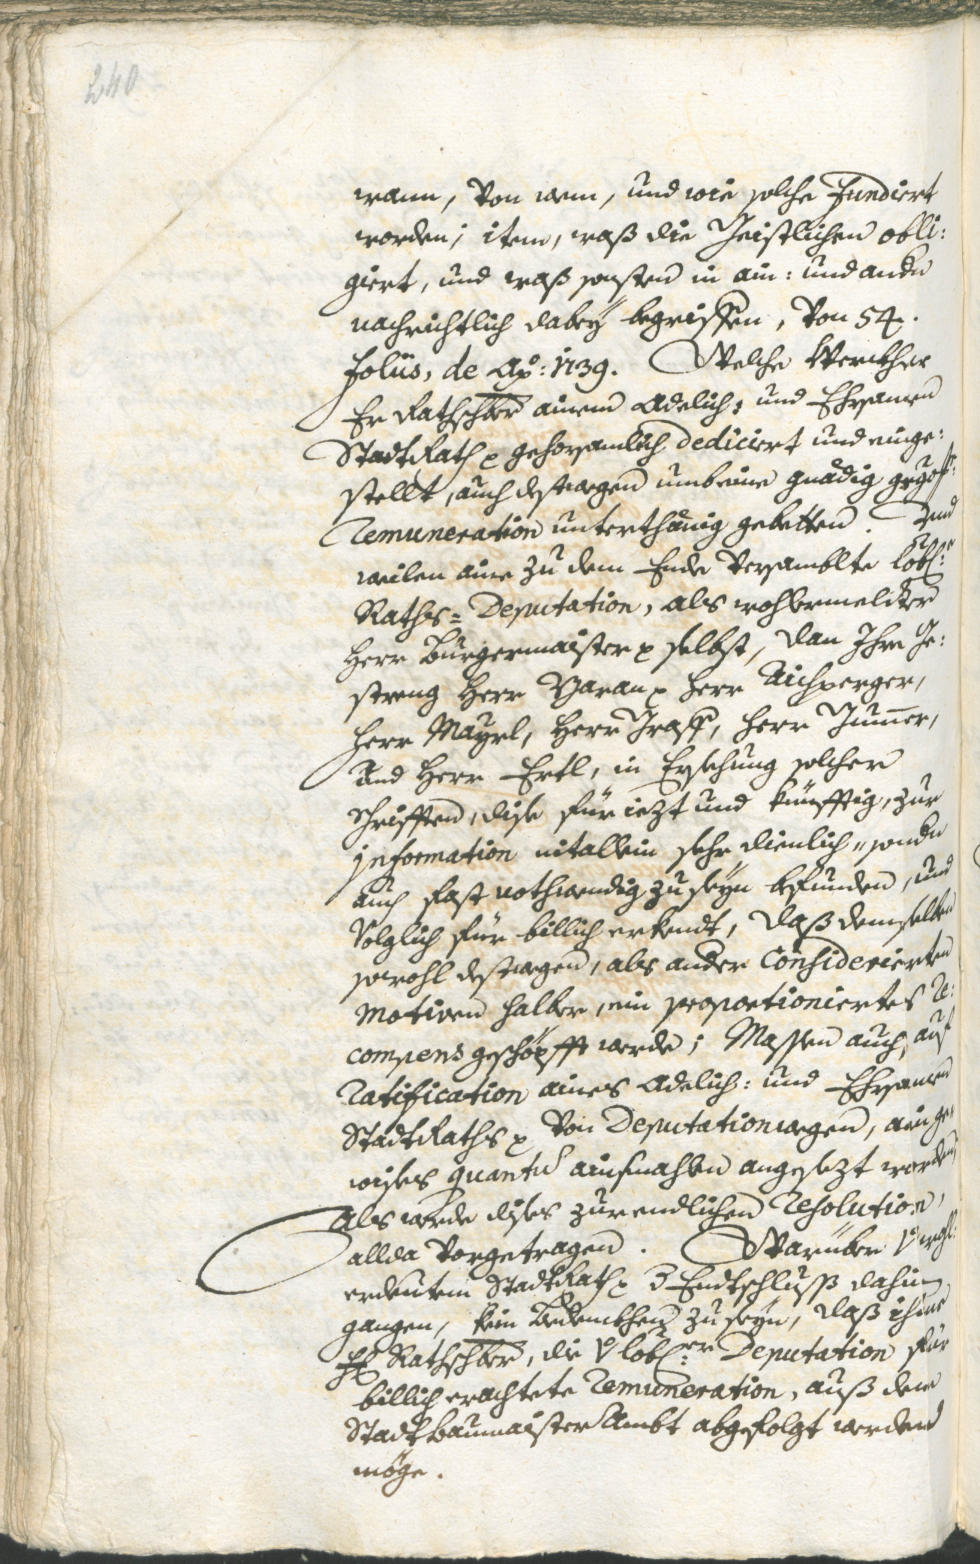 240
wann, von wem, und wie solche fundiert
worden; item, waß die Geistlichen obli:
giert, und waß sonsten in ain: und andern
nachrichtlich dabeÿ begriffen, von 54.
foliis, de Aõ: 1739. Welche Werckher
Er Rathschber ainem Adelich: und Ehrsamen
StadtRath p gehorsamlich dediciert und einge:
stellt, auch destwegen umb eine gnädig
Remuneration unterthänig gebetten. Und
weilen aine zu dem Ende versamblte Löbl:e
Raths= Deputation, als wohlermelter
Herr Burgermaister p selbst, dan Ihro Ge:
streng Herr Baran p Herr Aichperger,
Herr Mayrl, Herr Graff, Herr Gummer,
und Herr Ertl, in Ersehung solcher
Schrifften, dise für iezt und künfftig, zur
information nit allein sehr dienlich, sondern
auch fast nothwendig zu seÿn befunden, und
volglich für billich erkendt, daß demselben
sowohl destwegen, als ander Considerierten
motiven halber, ein proportioniertes Re:
compens geschöpfft werde; Massen auch, auf
ratification aines Adelich: und Ehrsamen
StadtRaths p von Deputationwegen, ain ge:
wises quantum ainsmahlen angesezt worden,
Als werde dises zur endlichen Resolution,
allda vorgetragen. Warüber wohl:
erdeutem StadtRath p Endtschluss dahin
gangen, kein Bedenckhen zu seÿn, daß ihme
H: Rathschber, die löbl:er Deputation für
billich erachtete Remuneration, auß dem
StadtBaumaisterAmbt abgefolgt werden
möge.